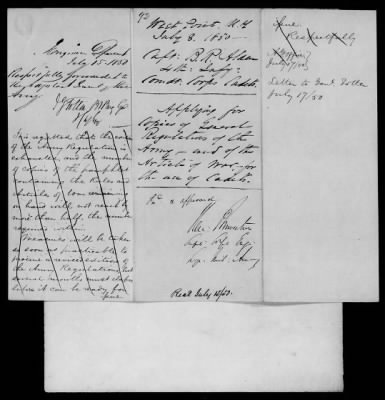 Engineer Departmt
July 15. 1850
Respectfully forwarded to
the Adjutant Genl of the
Army
It is regretted that the
of the Army Regulations is
exhausted, and the number
of copies of the pamphlet
containing the Rules and
Articles of War remaining
on hand will not reach to
more than half the number
required
Measures will be taken
as soon as practicable to
procure a revised edition of
the Army Regulations, but
several months must elapse
before it can be ready for
issue
92
West Point, N.Y.
July 8. 1850
Capt. B. R. Alden
4th Infy:
Comdt. Corps Cadets.
Applying for
copies of General
Regulations of the
Army - and of the
Articles of War - for
the use of Cadets.
approved
Recd July 15/50.
issue.
Respectfully
July 17/50
Letter to Genl. Totten
July 17/50